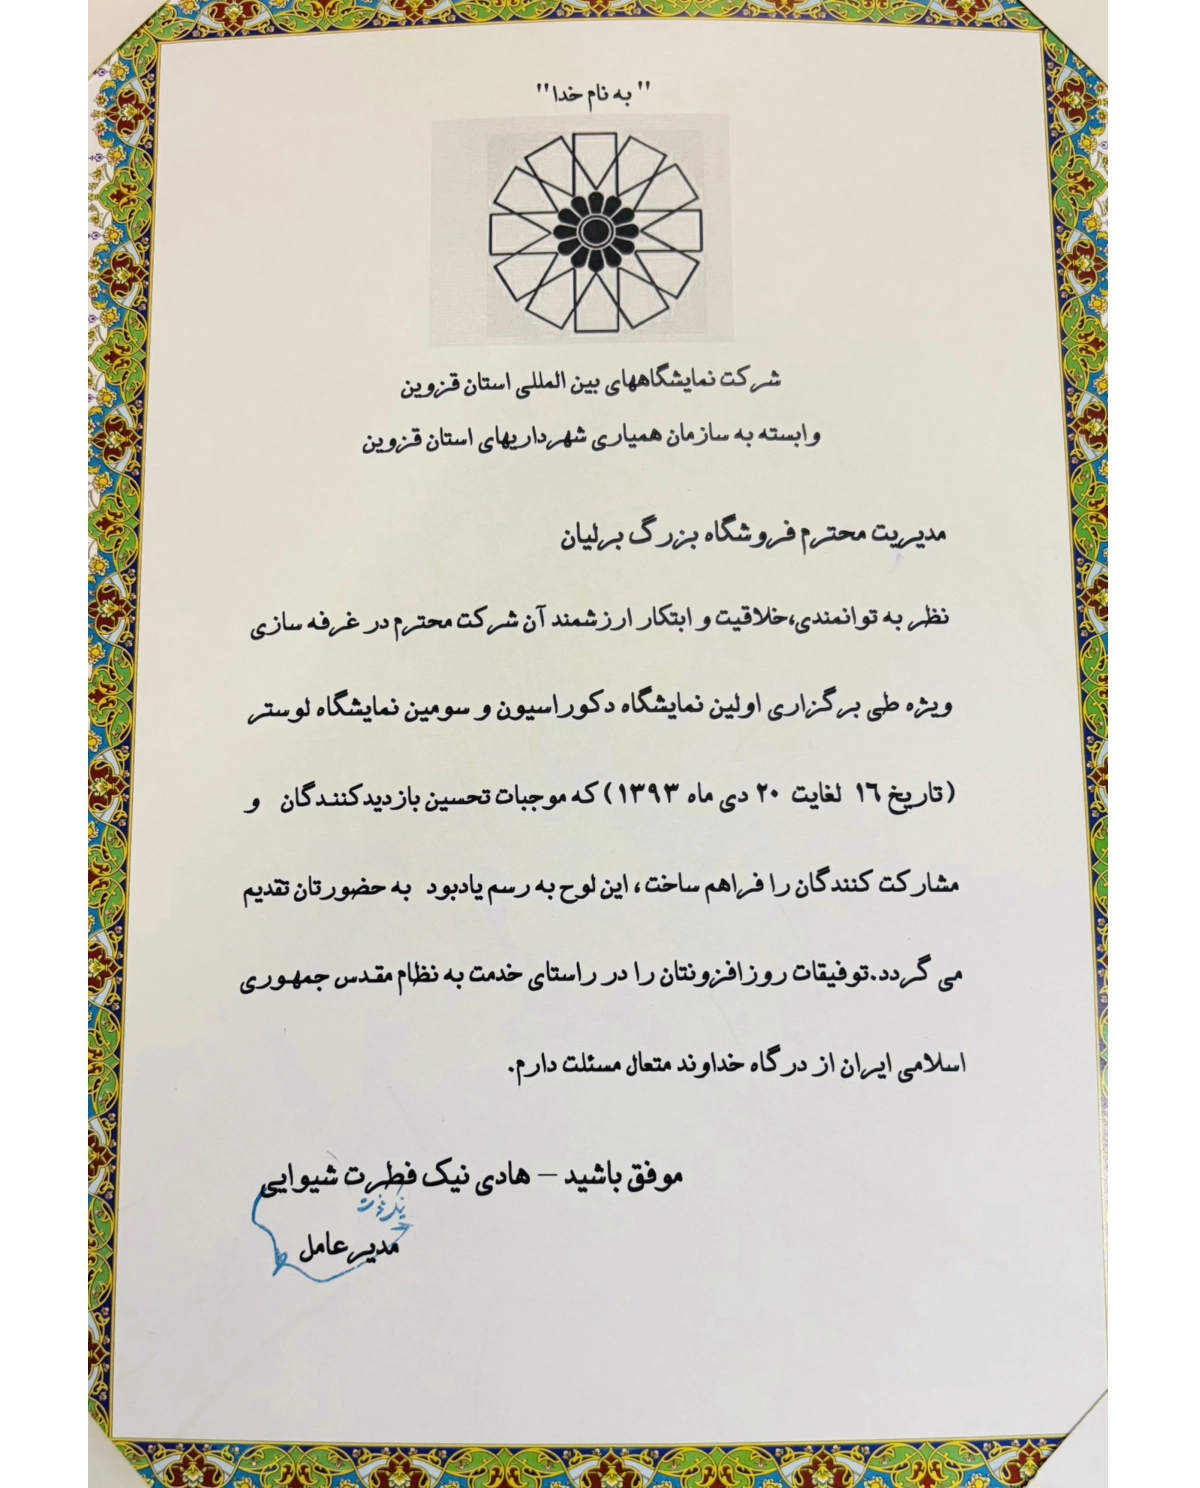 " به نام خدا"
شرکت نمایشگاههای بین المللی استان قزوین
وابسته به سازمان همیاری شهرداریهای استان قزوین
مدیریت محترم فروشگاه بزرگ برلیان
نظر به توانمندی،خلاقیت و ابتکار ارزشمند آن شرکت محترم در غرفه سازی
ویژه طی برگزاری اولین نمایشگاه دکوراسیون و سومین نمایشگاه لوستر
(تاریخ ۱۶ لغایت ۲۰ دی ماه ۱۳۹۳) که موجبات تحسین بازدیدکنندگان و
مشارکت کنندگان را فراهم ساخت، این لوح به رسم یادبود به حضورتان تقدیم
می گردد.توفیقات روزافزونتان را در راستای خدمت به نظام مقدس جمهوری
اسلامی ایران از درگاه خداوند متعال مسئلت دارم.
موفق باشید – هادی نیک فطرت شیوایی
مدیرعامل